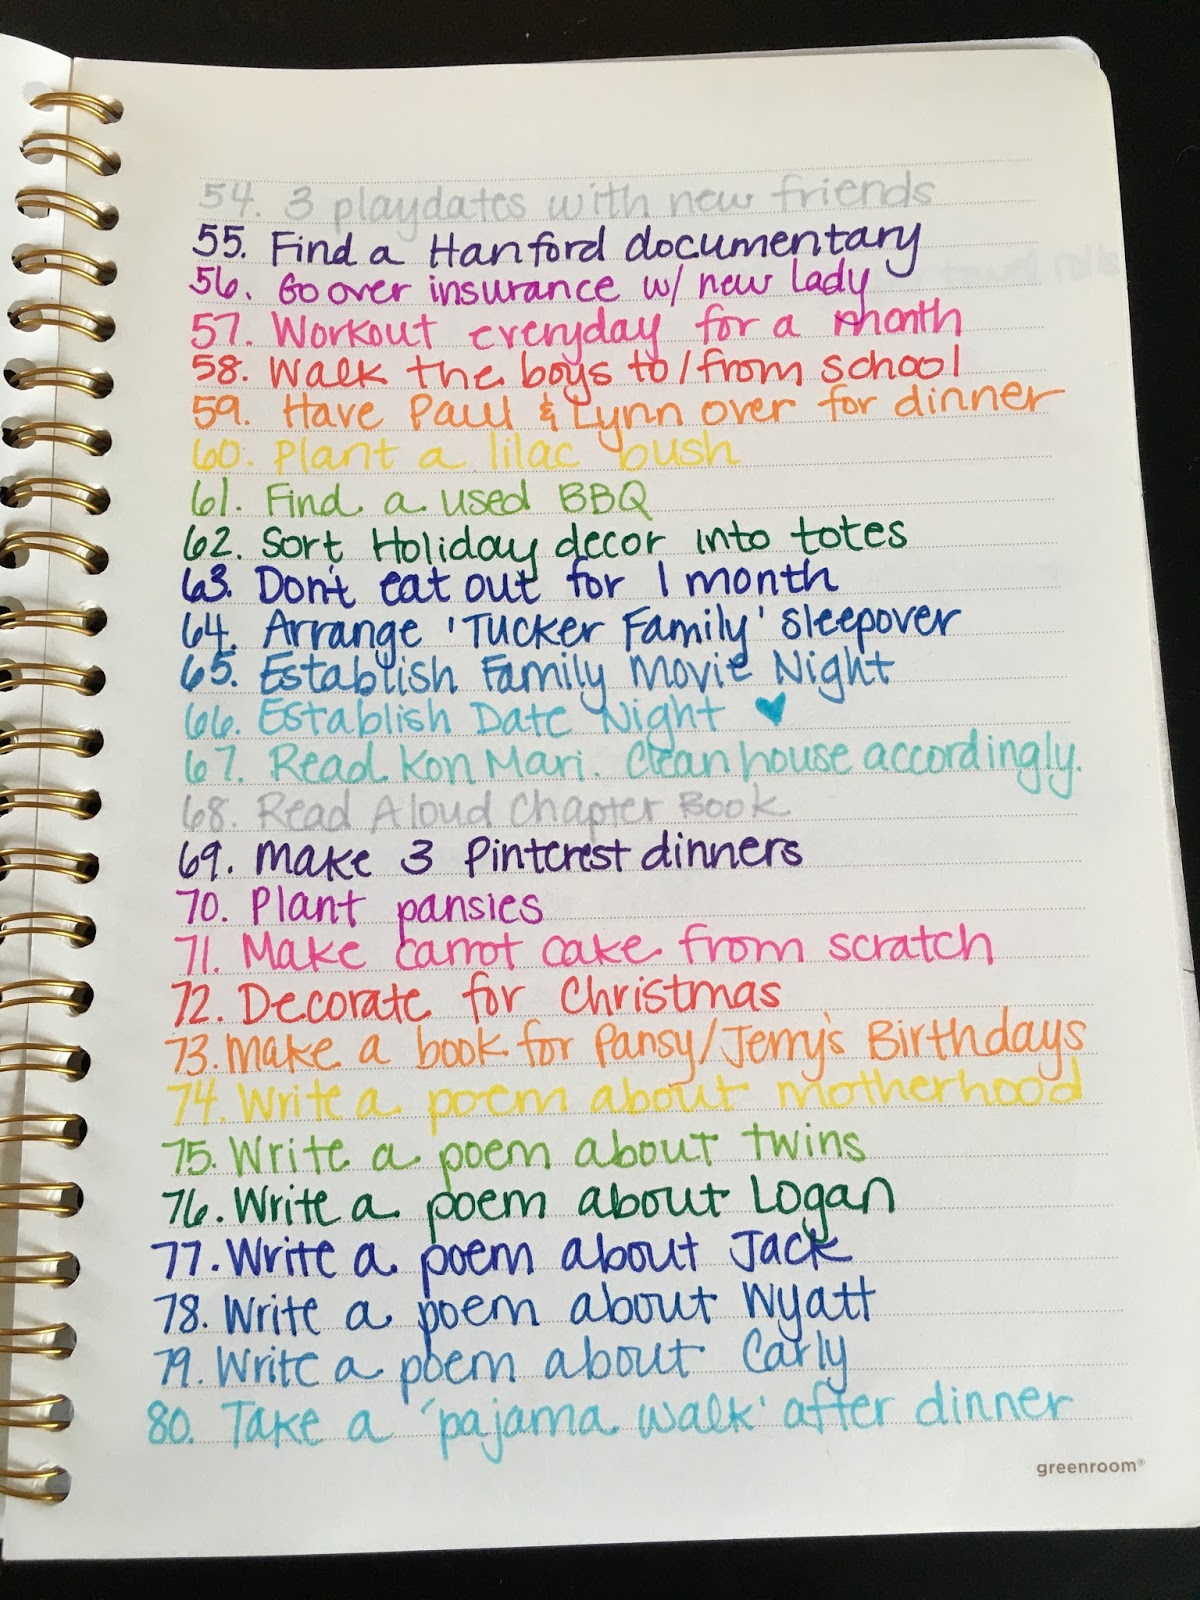 54. 3 playdates with new friends
55. Find a Hanford documentary
56. Go over insurance w/ new lady
57. Workout everyday for a month
58. Walk the boys to/from school
59. Have Paul & Lynn over for dinner
60. Plant a lilac bush
61. Find a used BBQ
62. Sort Holiday decor into totes
63. Don't eat out for 1 month
64. Arrange 'Tucker Family' sleepover
65. Establish Family Movie Night
66. Establish Date Night ♥
67. Read KonMari. Clean house accordingly.
68. Read Aloud Chapter Book
69. Make 3 Pinterest dinners
70. Plant pansies
71. Make carrot cake from scratch
72. Decorate for Christmas
73. Make a book for Pansy/Jerry's Birthdays
74. Write a poem about motherhood
75. Write a poem about twins
76. Write a poem about Logan
77. Write a poem about Jack
78. Write a poem about Wyatt
79. Write a poem about Carly
80. Take a 'pajama walk' after dinner
greenroom®